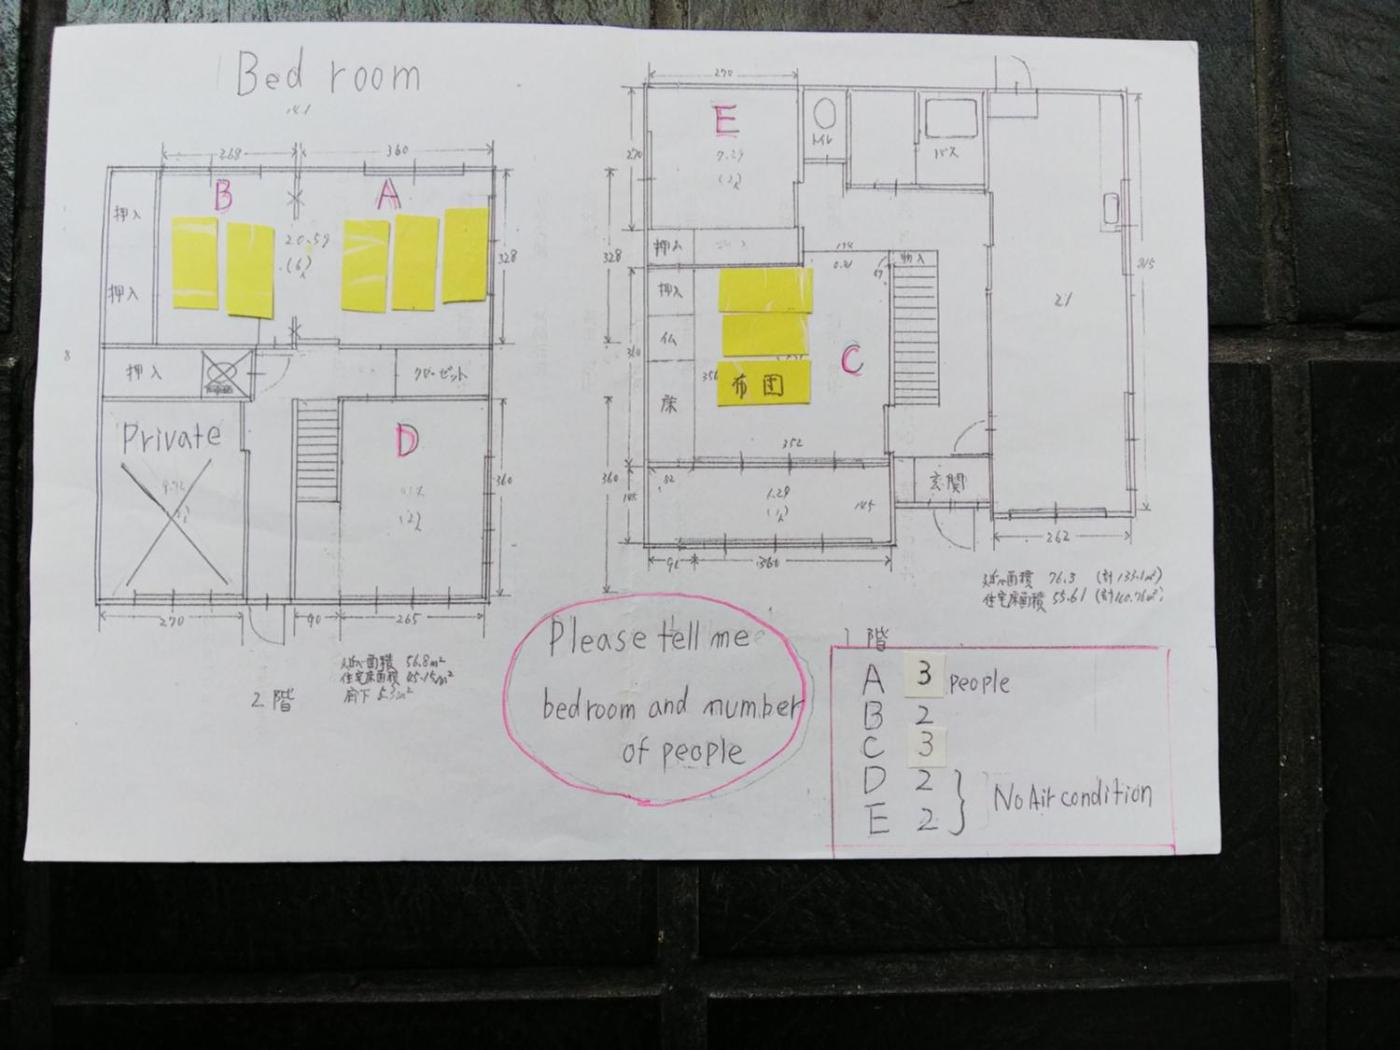 Bed room
268
360
B
A
押入
押入
20.59
(6)
328
押入
クローゼット
Private
D
360
270
90
265
56.8m²
2階
270
E
7.29
トイレ
バス
270
押入
328
物入
押入
仏
床
布団
C
352
21
玄関
1.29
145
360
360
262
76.3
住宅床面積 55.61
Please tell me
bedroom and number
of people
1階
A 3 people
B 2
C 3
D 2
E 2
No Air condition